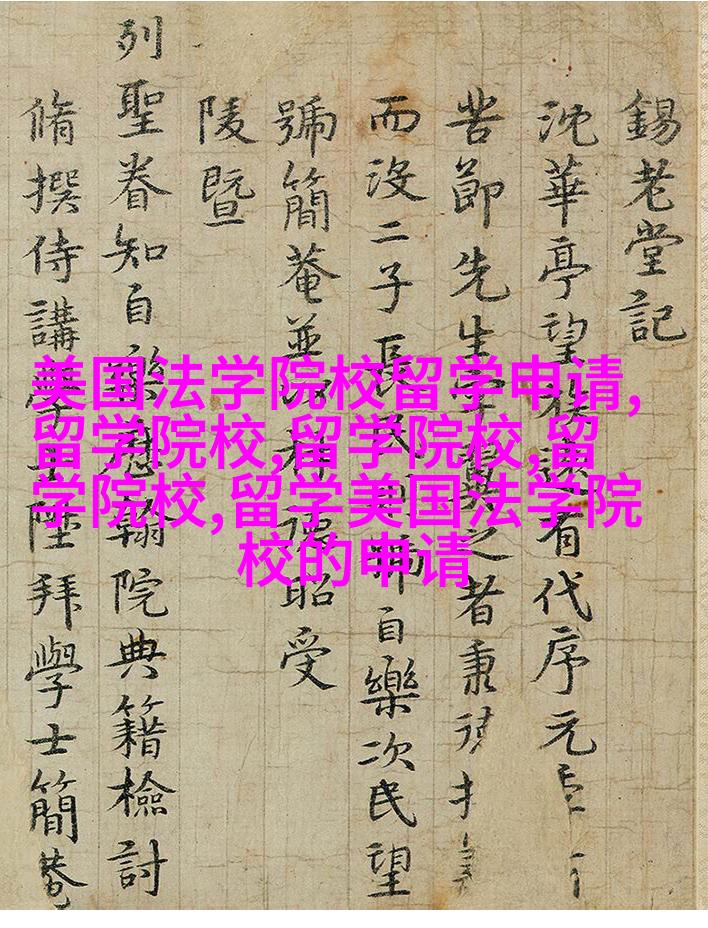 錫老堂記
沈華亭望族遠有代序元
苦節先生之者秉
而沒二子長民號自樂次民望
號簡菴並昭受
陵暨
列聖眷知自樂翰院典籍檢討
脩撰侍講學士陞拜學士簡菴
美国法学院校留学申请,
留学院校,留学院校,留
学院校,留学美国法学院
校的申请